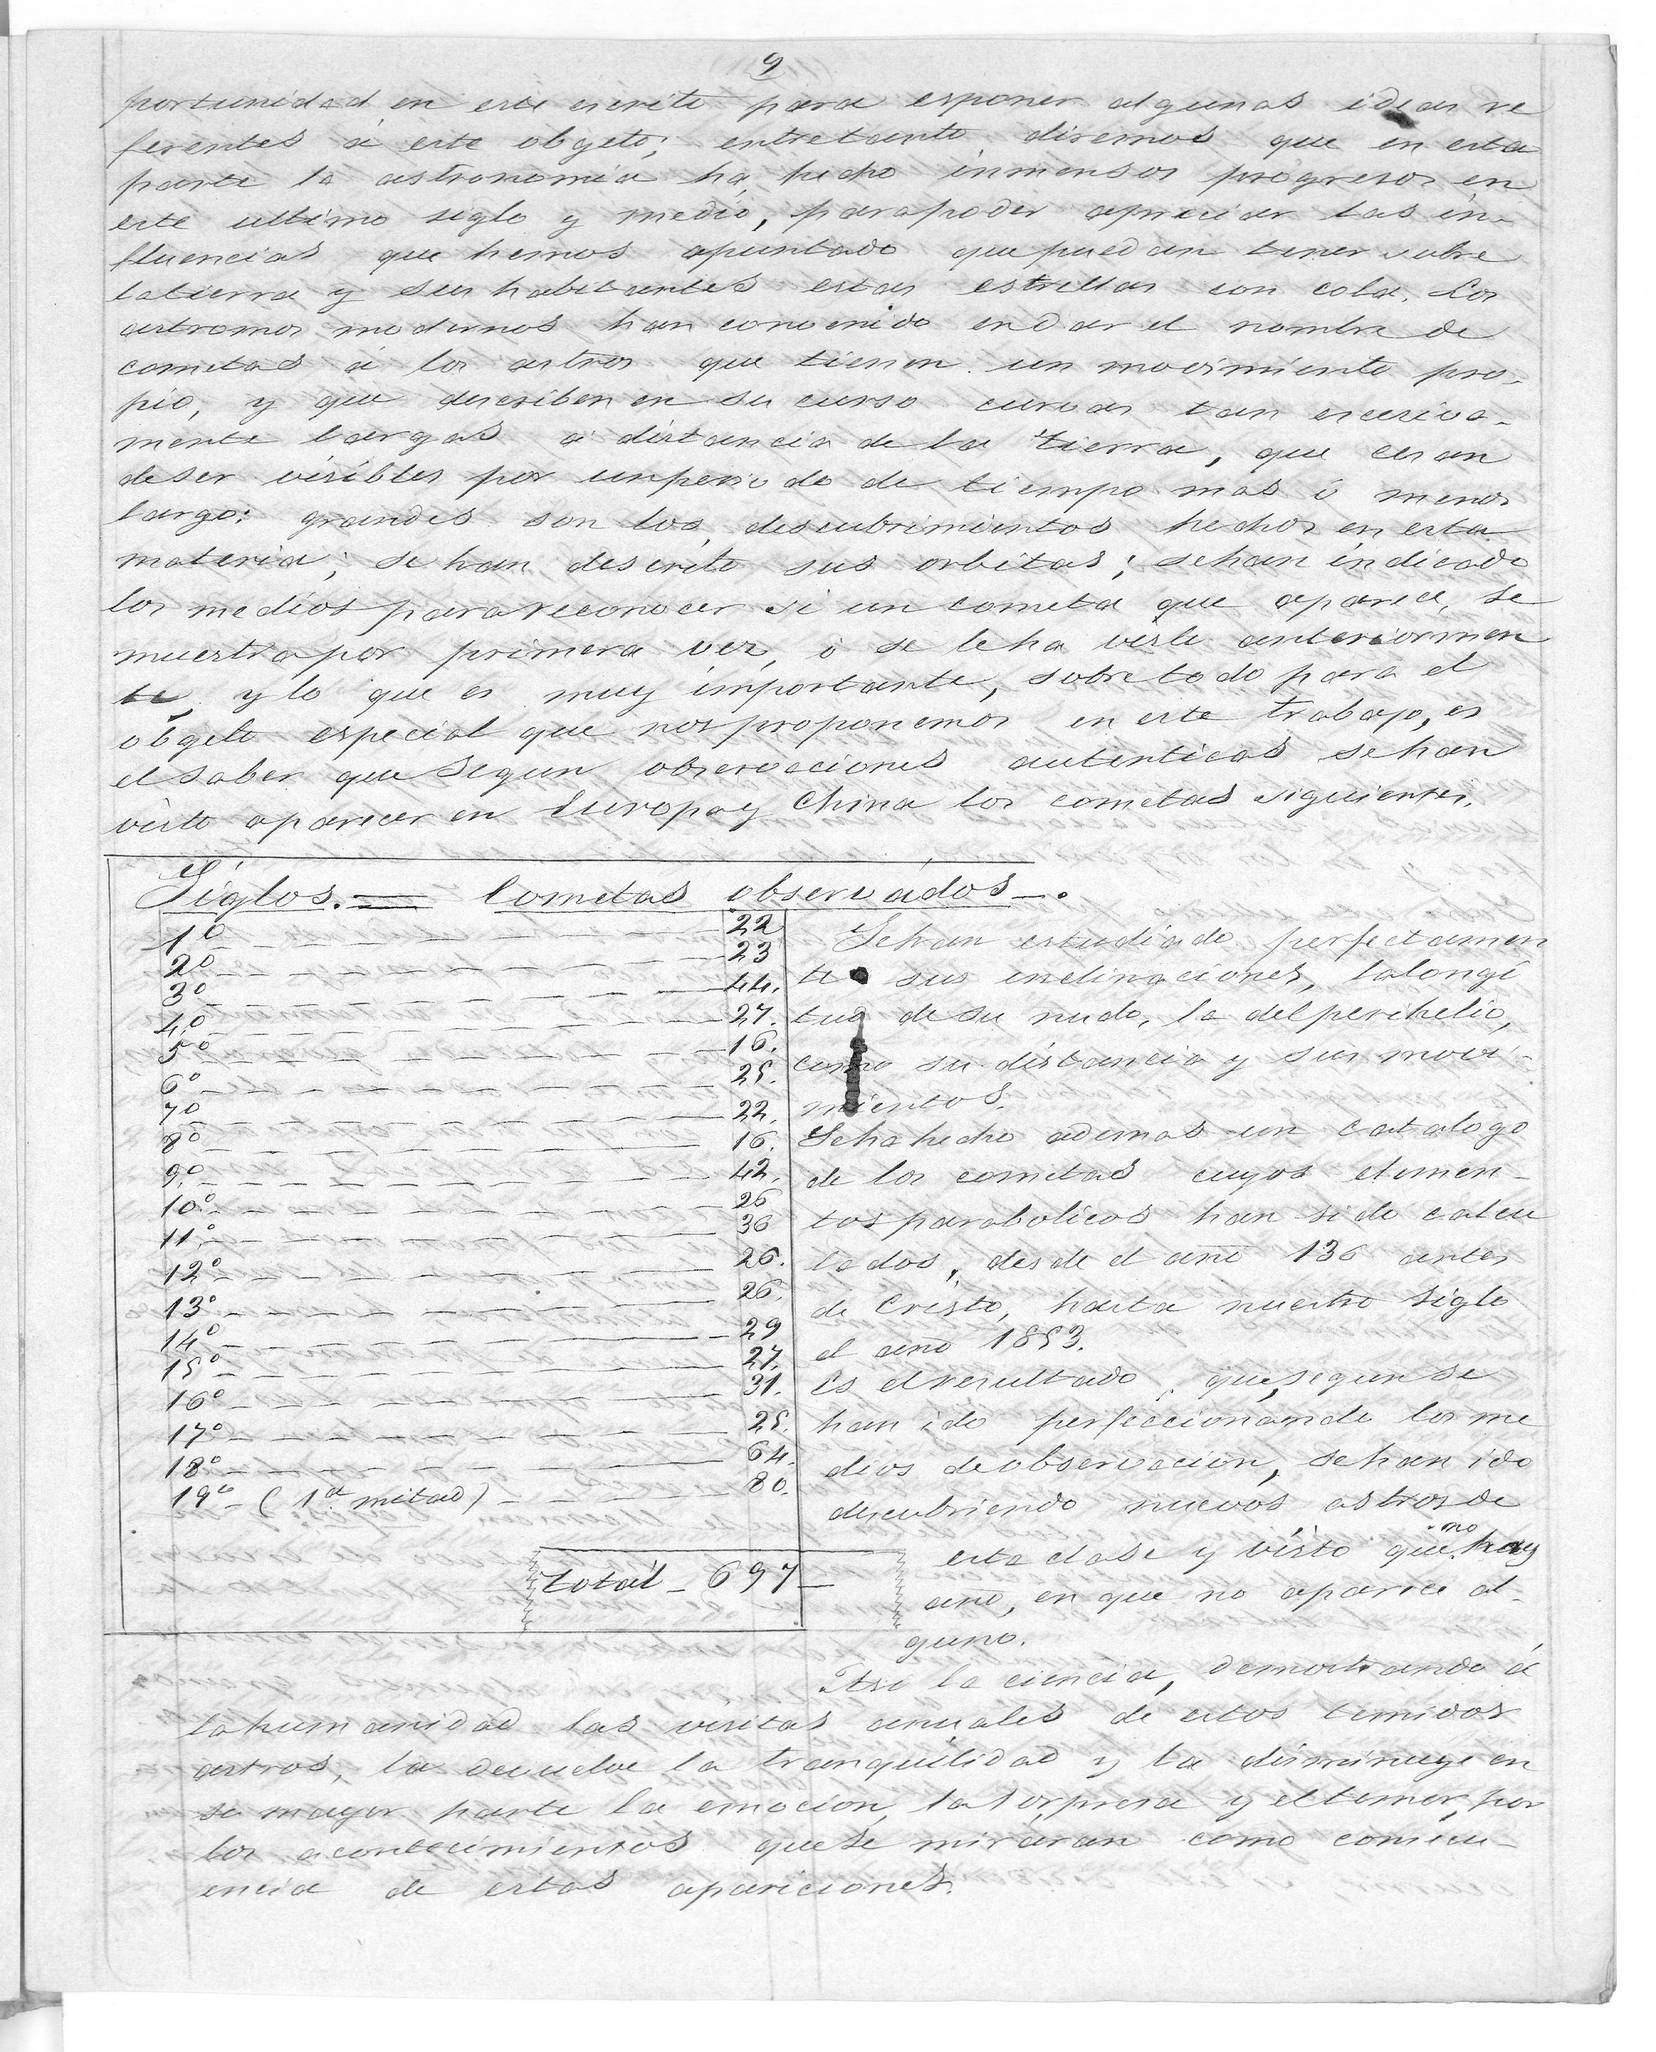 9
portunidad en este escrito para esponer algunas ideas re
ferentes á este obgeto; entretanto diremos que en esta
parte la astronomia ha hecho inmensos progresos en
este ultimo siglo y medio, para poder apreciar las in-
fluencias que hemos apuntado que puedan tener sobre
la tierra y sus habitantes estas estrellas con cola. Los
astromos modernos han convenido en dar el nombre de
cometas á los astros que tienen un movimiento pro-
pio, y que describen en su curso curvas tan escesiva-
mente largas á distancia de la tierra, que cesan
de ser visibles por un periodo de tiempo mas ó menos
largo: grandes son los descubrimientos hechos en esta
materia; se han descrito sus orbitas; se han indicado
los medios para reconocer si un cometa que aparece, se
muestra por primera vez, ó se le ha visto anteriormen
te, y lo que es muy importante, sobre todo para el
obgeto especial que nos proponemos en este trabajo, es
el saber que segun observaciones autenticas se han
visto aparecer en Europa y China los cometas siguientes.
Siglos. — Cometas observados —.
1º 22
2º 23
3º 44.
4º 27.
5º 16.
6º 25.
7º 22.
8º 16.
9º 42.
10º 26
11º 36
12º 26.
13º 26.
14º 29
15º 27.
16º 31.
17º 25.
18º 64.
19º - (1ª mitad) 80.
Total - 697 -
Se han estudiado perfectamen
te sus inclinaciones, la longi
tud de su nudo, la del perihelio,
como su distancia y sus movi-
mientos.
Se ha hecho ademas un catalogo
de los cometas cuyos elemen-
tos parabolicos han sido calcu
lados, desde el año 136 antes
de Cristo, hasta nuestro siglo
el año 1853.
Es el resultado, que, segun se
han ido perfeccionando los me
dios de observacion, se han ido
descubriendo nuevos astros de
esta clase y visto que no hay
año, en que no aparece al-
guno.
Asi la ciencia, demostrando á
la humanidad las visitas anuales de estos temidos
astros, la devuelve la tranquilidad y la disminuye en
su mayor parte la emocion, la sorpresa y el temor, por
los acontecimientos que se miraran como consecu-
encia de estas apariciones.